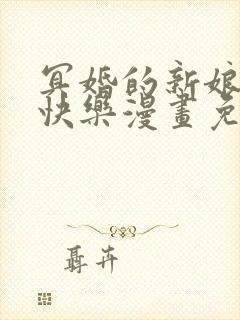 冥婚的新娘
快樂漫畫免
聶卉